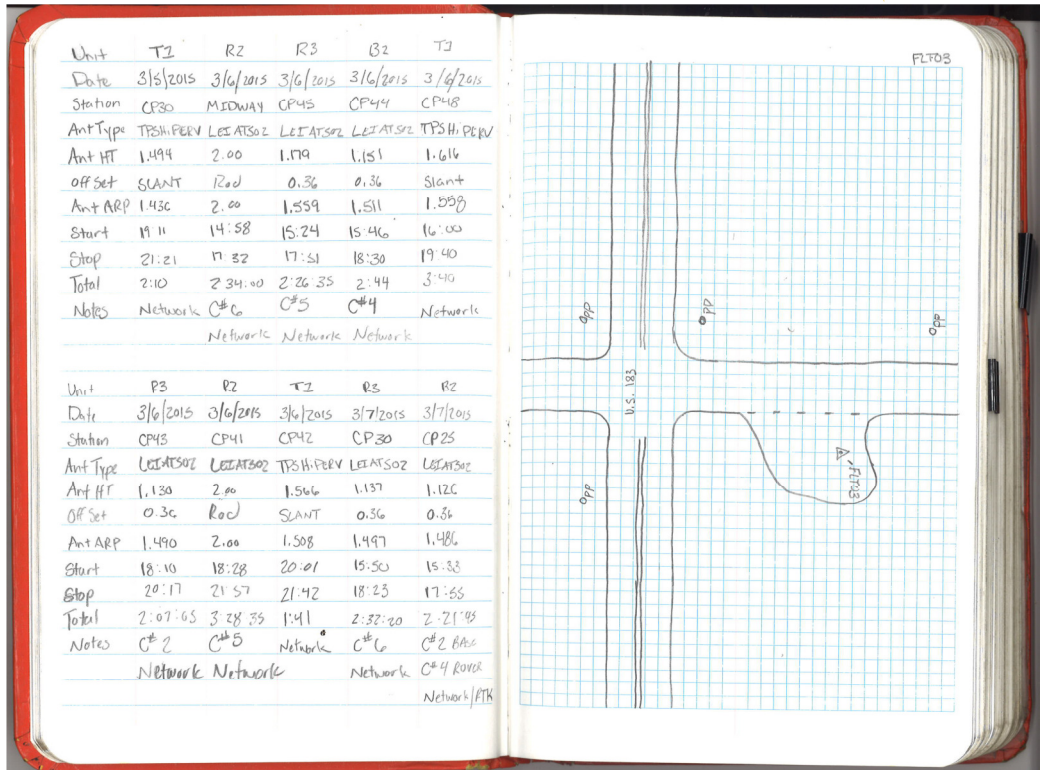 Unit T1 R2 R3 B2 T1
Date 3/5/2015 3/6/2015 3/6/2015 3/6/2015 3/6/2015
Station CP30 MIDWAY CP45 CP44 CP48
Ant Type TPSHiPERV LEIATS02 LEIATS02 LEIATS02 TPSHiPERV
Ant HT 1.494 2.00 1.179 1.151 1.616
Off Set SLANT Rod 0.36 0.36 Slant
Ant ARP 1.436 2.00 1.559 1.511 1.558
Start 19 11 14:58 15:24 15:46 16:00
Stop 21:21 17 32 17:51 18:30 19 40
Total 2:10 2 34:00 2:26 35 2:44 3:40
Notes Network C#6 C#5 C#4 Network
Network Network Network
Unit R3 R2 T1 R3 R2
Date 3/6/2015 3/6/2015 3/6/2015 3/7/2015 3/7/2015
Station CP43 CP41 CP42 CP30 CP25
Ant Type LEIATS02 LEIATS02 TPSHiPERV LEIATS02 LEIATS02
Ant HT 1.130 2.00 1.566 1.137 1.126
Off Set 0.36 Rod SLANT 0.36 0.36
Ant ARP 1.490 2.00 1.508 1.497 1.486
Start 18:10 18:28 20:01 15:50 15:33
Stop 20:17 21 57 21:42 18:23 17:55
Total 2:07:05 3:28 35 1:41 2:32:20 2:21:45
Notes C#2 C#5 Network C#6 C#2 BASE
Network Network Network C#4 ROVER
Network/RTK
FLT03
PP
PP
PP
U.S. 183
FLT03
PP